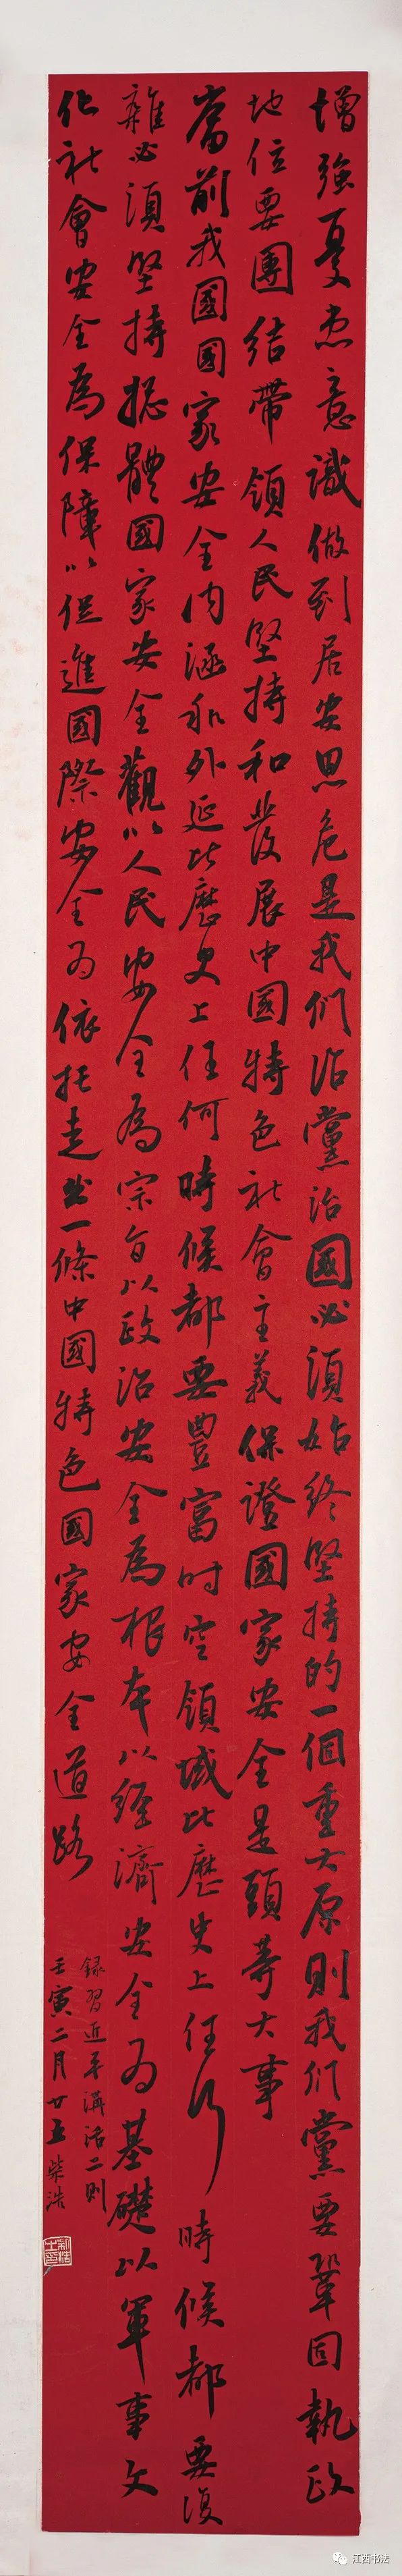 增強憂患意識做到居安思危是我们治黨治國必須始終堅持的一個重大原則我们黨要鞏固執政
地位要團结帶領人民堅持和發展中國特色社會主義保證國家安全是頭等大事
當前我國國家安全内涵和外延比歷史上任何時候都要豐富时空領域比歷史上任何時候都要復
雜必須堅持揔體國家安全觀以人民安全為宗旨以政治安全為根本以經濟安全为基礎以軍事文
化社會安全為保障以促進國際安全为依托走出一條中國特色國家安全道路
録習近平講话二則
壬寅二月廿五柴浩
江西书法